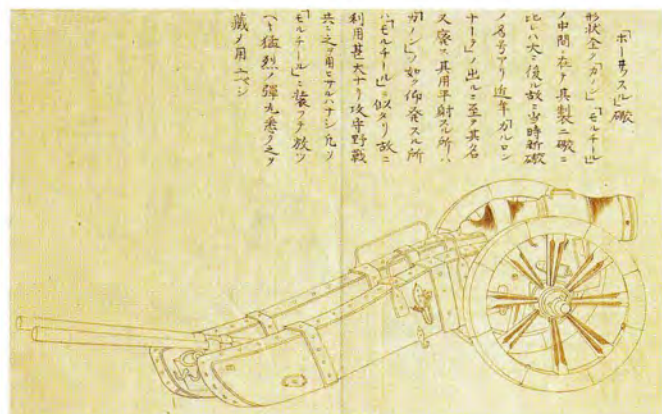 「ホーヰッスル」礟
形状全ク「カノン」「モルチール」
ノ中間ニ在テ其製二礟ニ
比レハ大ニ後ル故ニ当時新礟
ノ名号アリ近年「カルロン
ナーデ」ノ出ルニ至テ其名
ヲ廃ス其用平射スル所ハ
「カノン」ノ如ク仰発スル所
ハ「モルチール」ニ似タリ故ニ
利用甚大ナリ攻守野戦
共ニ之ヲ用ヒサルハナシ凡ソ
「モルチール」ニ装フテ放ツ
ヘキ猛烈ノ弾丸悉ク之ヲ
蔵メ用ユベシ